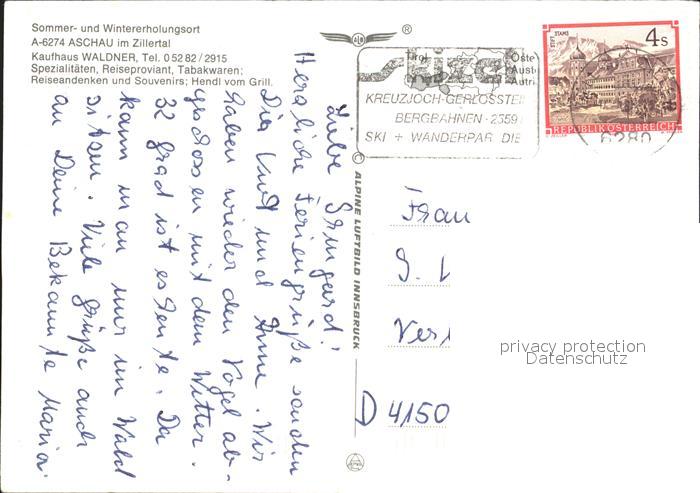 Sommer- und Wintererholungsort
A-6274 ASCHAU im Zillertal
Kaufhaus WALDNER, Tel. 0 52 82 / 2915
Spezialitäten, Reiseproviant, Tabakwaren;
Reiseandenken und Souvenirs; Hendl vom Grill.
®
Tirol
Öste
Aust
Autri
KREUZJOCH-GERLOSSTE
BERGBAHNEN · 2559
SKI + WANDERPAR DIE
STIFT STAMS
4 S
REPUBLIK ÖSTERREICH
6280
Liebe Irmgard!
Herzliche Feriengrüße senden
Dir Knut und Anne. Wir
haben wieder den Vogel ab-
geschossen mit dem Wetter.
32 Grad ist es heute. Da
kann man nur im Wald
sitzen. Viele Grüße auch
an Deine Bekannte Maria.
© ALPINE LUFTBILD INNSBRUCK
Frau
D 4150
privacy protection
Datenschutz